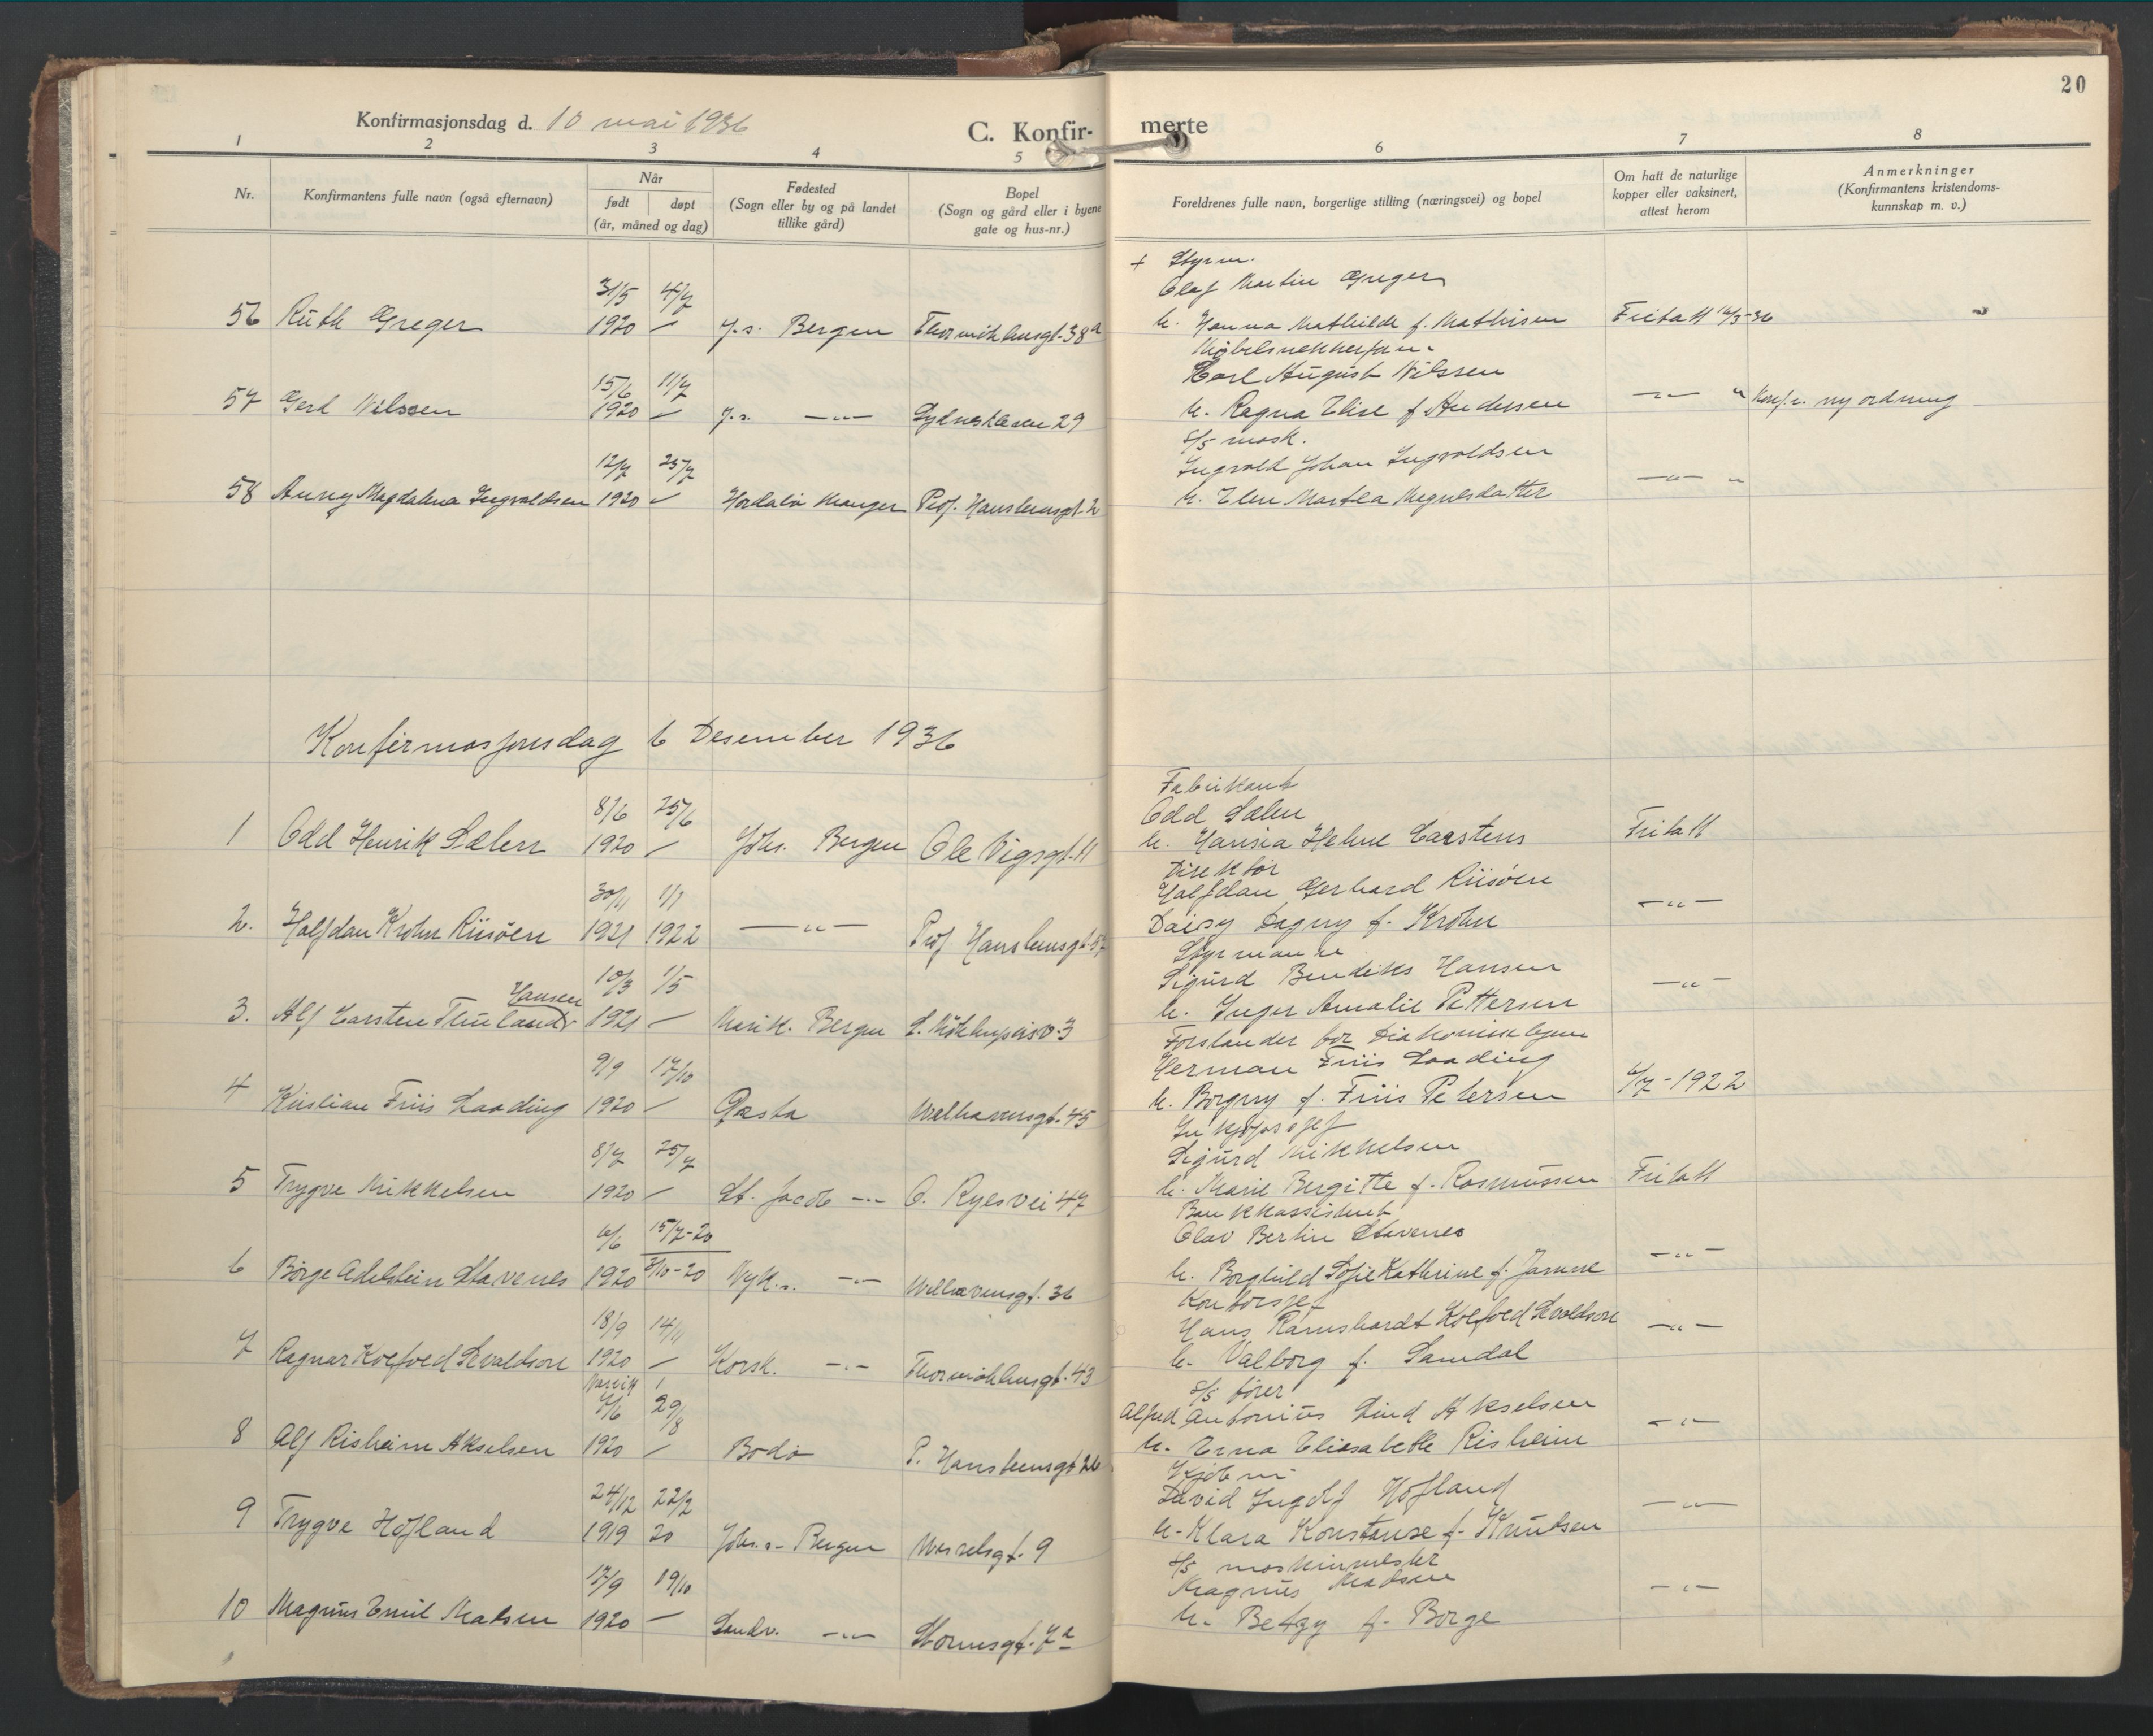 20
Konfirmasjonsdag d. 10 mai 1936
C. Konfir- merte
1 2 3 4 5 6 7 8
Nr.
Konfirmantens fulle navn (også efternavn)
Når
født døpt
(år, måned og dag)
Fødested
(Sogn eller by og på landet
tillike gård)
Bopel
(Sogn og gård eller i byene
gate og hus-nr.)
Foreldrenes fulle navn, borgerlige stilling (næringsvei) og bopel
Om hatt de naturlige
kopper eller vaksinert,
attest herom
Anmerkninger
(Konfirmantens kristendoms-
kunnskap m. v.)
+ Styrm.
31/5 4/7 Olaf Martin Greger
56 Ruth Greger 1920 — J.s. Bergen Thormøhlensgt. 38a h. Hanna Mathilde f. Mathisen Fritatt 16/3-36
Møbelsnekkerform.
15/6 11/7 Karl August Nilssen
57 Gerd Nilssen 1920 — J.s. —"— Sydneskleven 29 h. Ragna Elise f. Andersen —"— " Konf. e. ny ordning
s/s mask.
12/7 25/7 Ingvald Johan Ingvaldsen
58 Anny Magdalena Ingvaldsen 1920 — Hordabø Manger Prof. Hansteensgt. 2 h. Elen Martea Magnesdatter —"— "
Konfirmasjonsdag 6 Desember 1936
Fabrikant
8/6 25/6 Odd Sælen
1 Odd Henrik Sælen 1920 — Johs. Bergen Ole Vigsgt. 11 h. Hansia Helene Carstens Fritatt
Direktør
30/11 1/1 Halfdan Gerhard Riisøen
2. Halfdan Krohn Riisøen 1921 1922 —"— Prof Hansteensgt. Daisy Dagny f. Krohn —"—
Styrmann
Hansen 10/3 1/5 Sigurd Bendiks Hansen
3. Alf Carsten Thuland 1921 — Marik. Bergen S. 3 h. Inger Amalie Pettersen —"—
Forstander for Diakonissehjem
9/9 17/10 Herman Friis Laading
4 Kristian Friis Laading 1920 — Gasta Welhavensgt. 45 h. Borgny f. Friis Petersen 6/7-1922
Innkjøpssjef
8/7 25/7 Sigurd Mikkelsen
5 Trygve Mikkelsen 1920 — St. Jacob —"— O. Ryesvei 47 h. Marie Bergitte f. Rasmussen Fritatt
Bankkassistent
6/6 15/7-20 Olav Bertin Stavenes
6 Børge Adelstein Stavenes 1920 3/10-20 Nyk.s. —"— Welhavensgt. 36 h. Borghild Sofie Kathrine f. Janson —"—
Kontorsjef
18/9 14/11 Hans Ramshardt Koefoed Sevaldson
7 Ragnar Koefoed Sevaldson 1920 — Korsk. —"— Thormøhlensgt. 43 h. Valborg f. Samdal —"—
Narvik s/s fører
7/6 29/8 Alfred Antonius Lind Akselsen
8 Alf Risheim Akselsen 1920 — Bodø P. Hansteensgt 26 h. Erna Eliasabeth Risheim —"—
Kjøbm
24/12 22/2 David Ingolf Hofland
9 Trygve Hofland 1919 20 Johs.s. Bergen Wesselsgt. 9 h. Klara Konstanse f. Knutsen —"—
s/s maskinmester
17/9 19/10 Magnus Madsen
10 Magnus Emil Madsen 1920 — Sandv. —"— Stormsgt. 7a h. Betzy f. Borge —"—